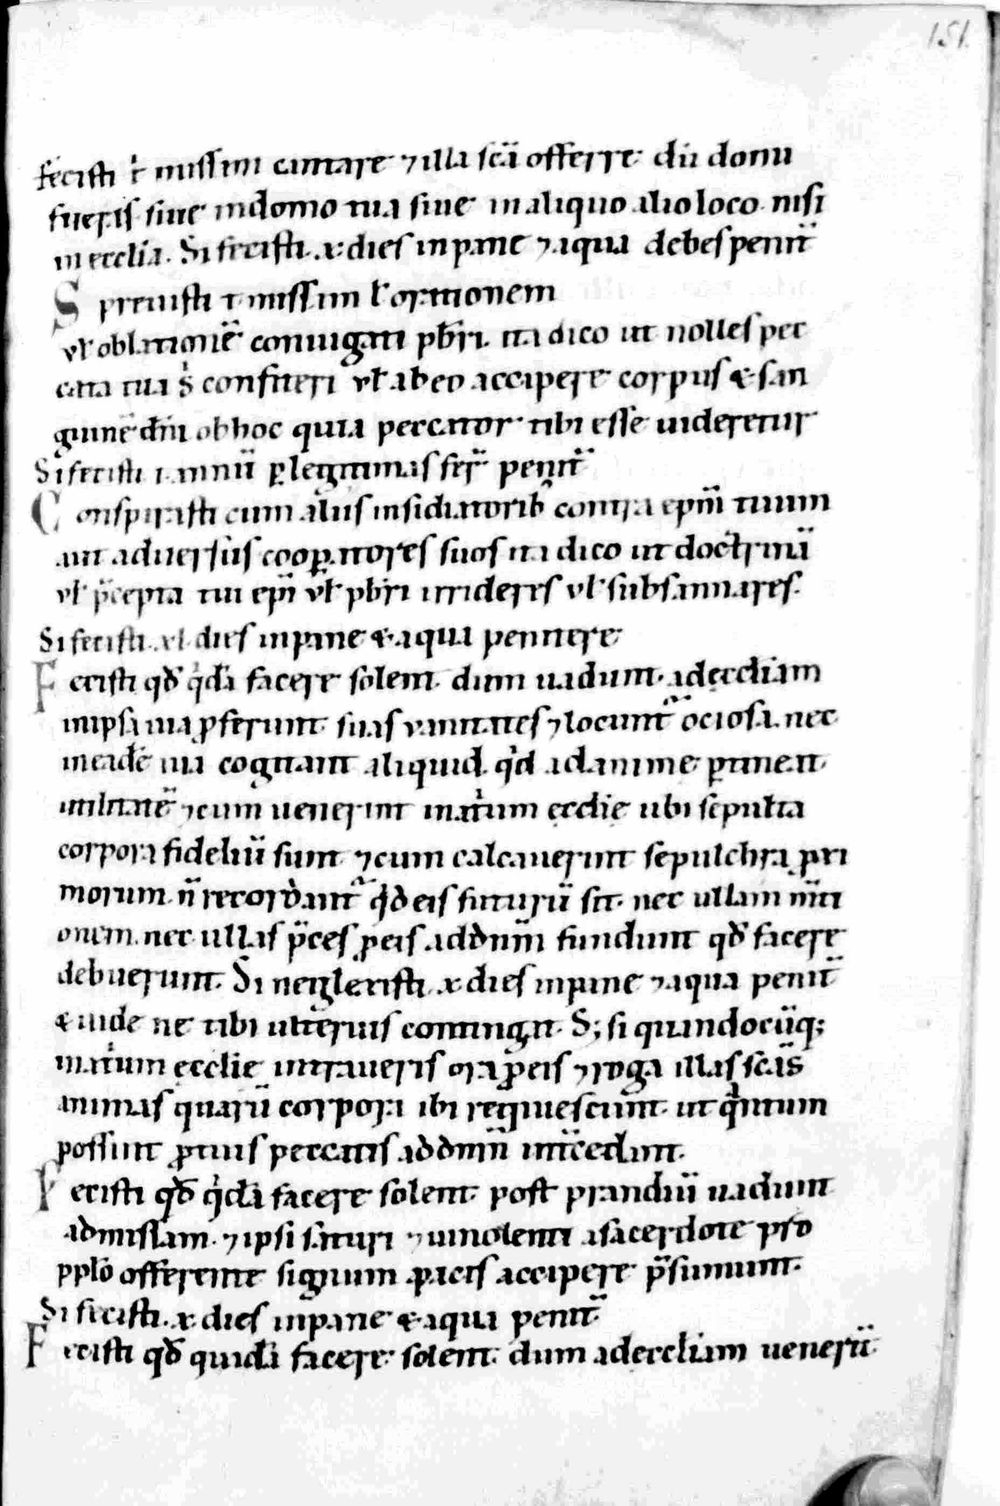 151.
fecisti t̛ missam cantare ⁊ illa sc̄a offerre dū domi
fueris siue indomo tua siue inaliquo alio loco nisi
in eccl̄ia. Si fecisti .x. dies inpane ⁊ aqua debes penit̄
Spreuisti t missam ƚ orationem
uƚ oblationē coniugati pb̄ri. ita dico ut nolles pec
cata tua s̓ confiteri uƚ ab eo accipere corpus & san
guinē dn̄i obhoc quia peccator tibi esse uideretur
Si fecisti .i. annū p̱ legitimas fer̄ penit̄
Conspirasti cum aliis insidiatorib; contra ep̄m tuum
aut aduersus coop̱atores suos ita dico ut doctrinā
uƚ p̄cepta tui ep̄i uƚ pb̄ri irrideres uƚ subsannares.
Si fecisti .xl. dies inpane & aqua penitere
Fecisti qd̄ q̓dā facere solent. dum uadunt adecc̄liam
inipsa uia ꝓferunt suas uanitates ⁊ locunt̄ ociosa. nec
ineadē uia cogitant aliquid. q̓d adanime p̱tineat
utilitatē ⁊ cum uenerint inatrium ecclie ubi sepulta
corpora fideliū sunt ⁊ cum calcauerint sepulchra ꝓxi
morum. n̄ recordant̄ q̓d eis futurū sit. nec ullam m̄ti
onem. nec ullas p̄ces ꝓeis addn̄m fundunt qd̄ facere
debuerunt. Si neglexisti .x. dies inpane ⁊ aqua penit̄
& uide ne tibi ulterius contingat. S; si quandocūq;
inatrium ecclie intraueris ora ꝓeis ⁊ roga illas scā̄s
animas quarū corpora ibi requiescunt. ut q̓ntum
possunt ꝓtuis peccatis addn̄m int̄cedant.
Fecisti qd̄ q̓dā facere solent. post prandiū uadunt
admissam. ⁊ ipsi saturi ⁊ uinolenti asacerdote pro
pplō offerente signum pacis accipere p̄sumunt.
Si fecisti .x. dies inpane & aqua penit̄
Fecisti qd̄ quidā facere solent. dum adeccliam uenerīt